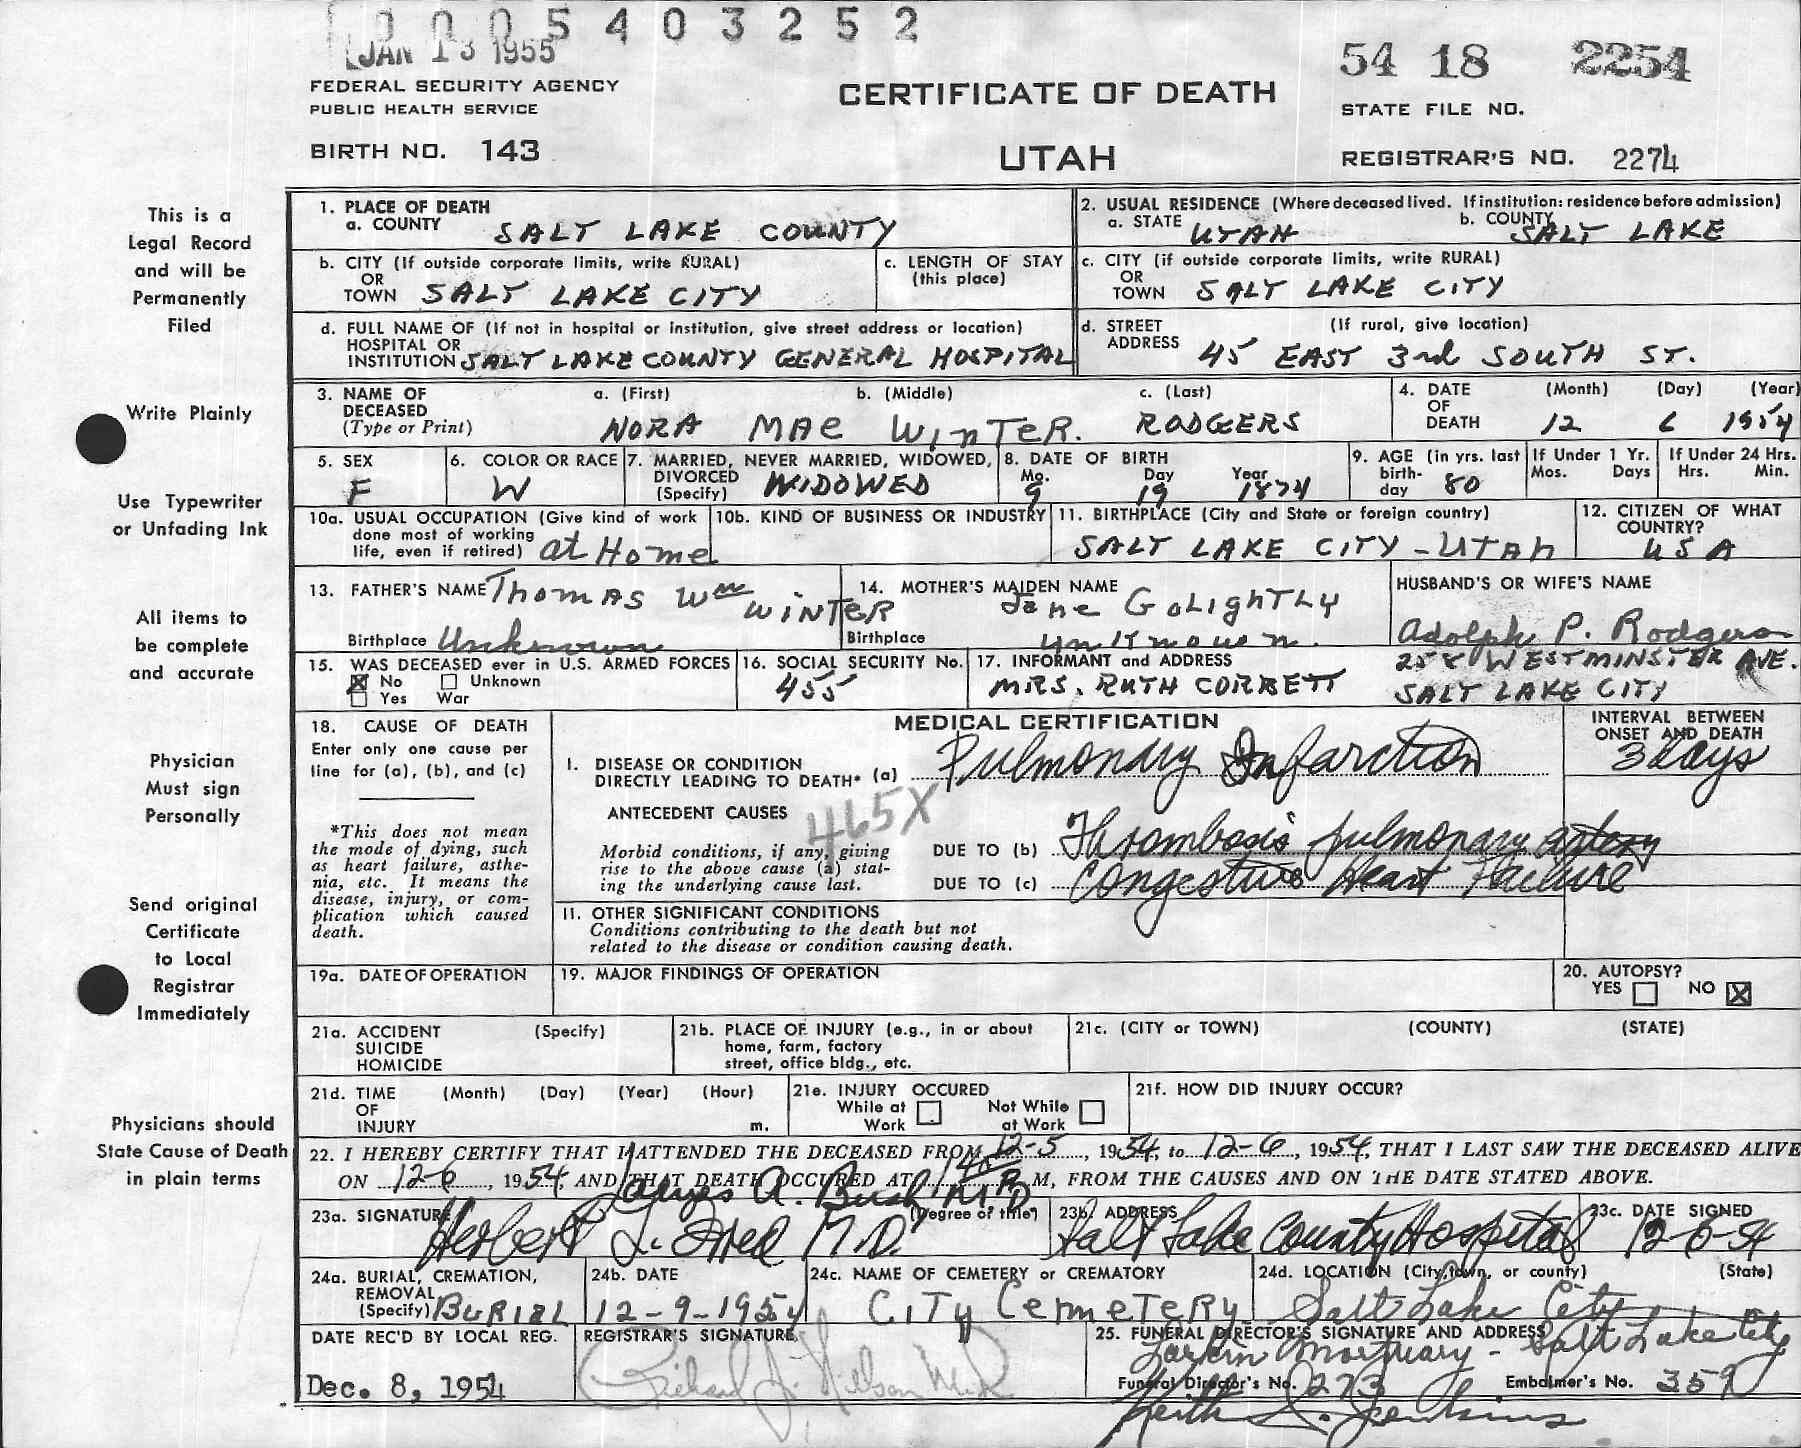 0005403252
JAN 13 1955
54 18 2254
FEDERAL SECURITY AGENCY
PUBLIC HEALTH SERVICE
CERTIFICATE OF DEATH
STATE FILE NO.
BIRTH NO. 143
UTAH
REGISTRAR'S NO. 2274
This is a
Legal Record
and will be
Permanently
Filed
Write Plainly
Use Typewriter
or Unfading Ink
All items to
be complete
and accurate
Physician
Must sign
Personally
Send original
Certificate
to Local
Registrar
Immediately
Physicians should
State Cause of Death
in plain terms
1. PLACE OF DEATH
a. COUNTY SALT LAKE COUNTY
2. USUAL RESIDENCE (Where deceased lived. If institution: residence before admission)
a. STATE UTAH b. COUNTY SALT LAKE
b. CITY (If outside corporate limits, write RURAL)
OR
TOWN SALT LAKE CITY
c. LENGTH OF STAY
(this place)
c. CITY (if outside corporate limits, write RURAL)
OR
TOWN SALT LAKE CITY
d. FULL NAME OF (If not in hospital or institution, give street address or location)
HOSPITAL OR
INSTITUTION SALT LAKE COUNTY GENERAL HOSPITAL
d. STREET (If rural, give location)
ADDRESS 45 EAST 3rd SOUTH ST.
3. NAME OF a. (First) b. (Middle) c. (Last)
DECEASED
(Type or Print) NORA MAE WINTER. RODGERS
4. DATE (Month) (Day) (Year)
OF
DEATH 12 6 1954
5. SEX
F
6. COLOR OR RACE
W
7. MARRIED, NEVER MARRIED, WIDOWED,
DIVORCED
(Specify) WIDOWED
8. DATE OF BIRTH
Mo. Day Year
9 19 1874
9. AGE (in yrs. last
birth-
day 80
If Under 1 Yr.
Mos. Days
If Under 24 Hrs.
Hrs. Min.
10a. USUAL OCCUPATION (Give kind of work
done most of working
life, even if retired) at Home
10b. KIND OF BUSINESS OR INDUSTRY
11. BIRTHPLACE (City and State or foreign country)
SALT LAKE CITY - UTAH
12. CITIZEN OF WHAT
COUNTRY?
USA
13. FATHER'S NAME Thomas Wm WINTER
Birthplace Unknown
14. MOTHER'S MAIDEN NAME
Jane GOLIGHTLY
Birthplace unknown.
HUSBAND'S OR WIFE'S NAME
Adolph P. Rodgers
15. WAS DECEASED ever in U.S. ARMED FORCES
No Unknown
Yes War
16. SOCIAL SECURITY No.
455
17. INFORMANT and ADDRESS
MRS. RUTH CORBETT
WESTMINSTER AVE.
SALT LAKE CITY
18. CAUSE OF DEATH
Enter only one cause per
line for (a), (b), and (c)
*This does not mean
the mode of dying, such
as heart failure, asthe-
nia, etc. It means the
disease, injury, or com-
plication which caused
death.
MEDICAL CERTIFICATION
INTERVAL BETWEEN
ONSET AND DEATH
I. DISEASE OR CONDITION
DIRECTLY LEADING TO DEATH* (a) Pulmonary Infarction
3 days
ANTECEDENT CAUSES
465X
Morbid conditions, if any, giving
rise to the above cause (a) stat-
ing the underlying cause last.
DUE TO (b) Thrombosis pulmonary artery
DUE TO (c) Congestive Heart Failure
11. OTHER SIGNIFICANT CONDITIONS
Conditions contributing to the death but not
related to the disease or condition causing death.
19a. DATE OF OPERATION
19. MAJOR FINDINGS OF OPERATION
20. AUTOPSY?
YES NO
21a. ACCIDENT (Specify)
SUICIDE
HOMICIDE
21b. PLACE OF INJURY (e.g., in or about
home, farm, factory
street, office bldg., etc.
21c. (CITY or TOWN) (COUNTY) (STATE)
21d. TIME (Month) (Day) (Year) (Hour)
OF
INJURY m.
21e. INJURY OCCURED
While at Work
Not While at Work
21f. HOW DID INJURY OCCUR?
22. I HEREBY CERTIFY THAT I ATTENDED THE DECEASED FROM 12-5, 1954, to 12-6, 1954, THAT I LAST SAW THE DECEASED ALIVE
ON 12-6, 1954, AND THAT DEATH OCCURED AT M, FROM THE CAUSES AND ON THE DATE STATED ABOVE.
James A. Bush M.D
23a. SIGNATURE (Degree of title)
Herbert L. Fred M.D.
23b. ADDRESS
Salt Lake County Hospital
23c. DATE SIGNED
12-6-54
24a. BURIAL, CREMATION,
REMOVAL
(Specify) BURIAL
24b. DATE
12-9-1954
24c. NAME OF CEMETERY or CREMATORY
CITY CEMETERY
24d. LOCATION (City, town, or county) (State)
Salt Lake City
DATE REC'D BY LOCAL REG.
Dec. 8, 1954
REGISTRAR'S SIGNATURE
25. FUNERAL DIRECTOR'S SIGNATURE AND ADDRESS
Larkin Mortuary - Salt Lake City
Funeral Director's No. 273 Embalmer's No. 359
Keith S. Jenkins